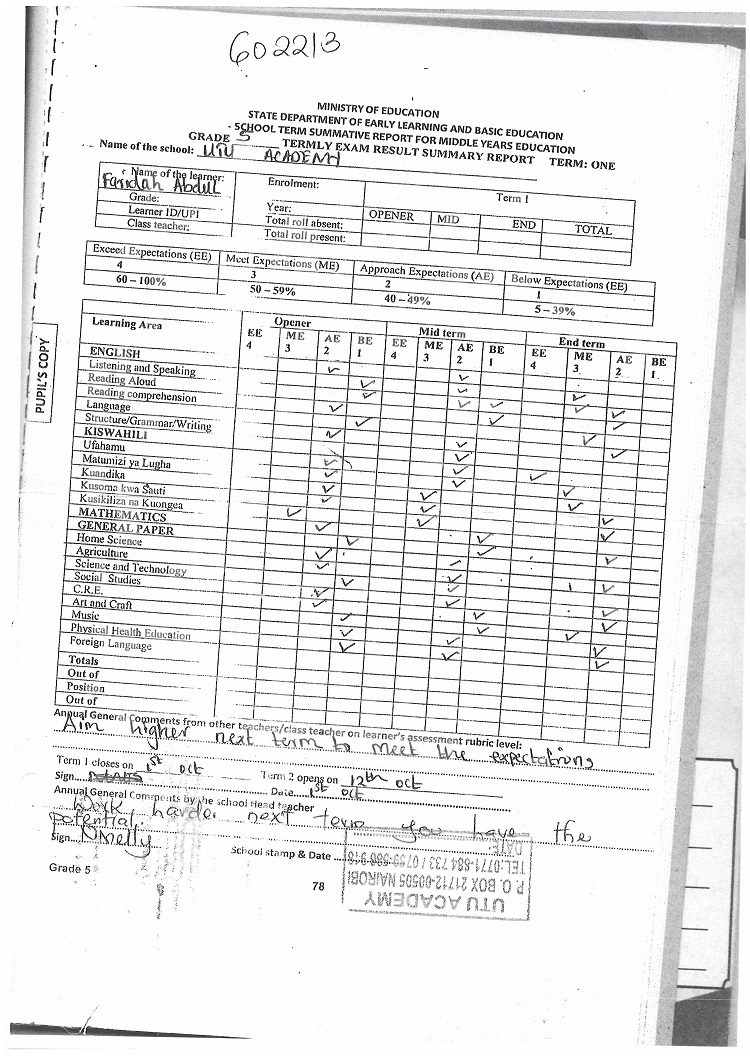 602213
MINISTRY OF EDUCATION
STATE DEPARTMENT OF EARLY LEARNING AND BASIC EDUCATION
SCHOOL TERM SUMMATIVE REPORT FOR MIDDLE YEARS EDUCATION
GRADE 5 TERMLY EXAM RESULT SUMMARY REPORT TERM: ONE
Name of the school: UTU ACADEMY
Name of the learner: Faridah Abdul
Grade:
Learner ID/UPI
Class teacher:
Enrolment:
Year:
Total roll absent:
Total roll present:
Term 1
OPENER MID END TOTAL
Exceed Expectations (EE) Meet Expectations (ME) Approach Expectations (AE) Below Expectations (EE)
4 3 2 1
60 – 100% 50 – 59% 40 – 49% 5 – 39%
Learning Area Opener Mid term End term
EE ME AE BE EE ME AE BE EE ME AE BE
4 3 2 1 4 3 2 1 4 3 2 1
ENGLISH
Listening and Speaking
Reading Aloud
Reading comprehension
Language
Structure/Grammar/Writing
KISWAHILI
Ufahamu
Matumizi ya Lugha
Kuandika
Kusoma kwa Sauti
Kusikiliza na Kuongea
MATHEMATICS
GENERAL PAPER
Home Science
Agriculture
Science and Technology
Social Studies
C.R.E.
Art and Craft
Music
Physical Health Education
Foreign Language
Totals
Out of
Position
Out of
PUPIL'S COPY
Annual General Comments from other teachers/class teacher on learner's assessment rubric level:
Aim higher next term to meet the expectations
Term 1 closes on 1st oct Term 2 opens on 12th oct
Sign Date 1st oct
Annual General Comments by the school Head teacher
Work harder next term you have the
potential
Sign
School stamp & Date
UTU ACADEMY
P. O. BOX 21712-00505 NAIROBI
TEL:0771-884 733 / 0799-586-918
DATE
Grade 5
78